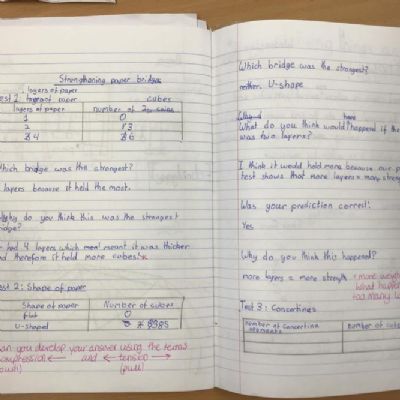 Strengthening paper bridges
layers of paper
Test 1:
layers of paper number of cubes
1 0
2 3
4 6
Which bridge was the strongest?
layers because it held the most.
Why do you think this was the strongest
bridge?
had 4 layers which meant it was thicker
and therefore it held more cubes.
Test 2: Shape of paper
Shape of paper Number of cubes
flat 0
U-shaped
Can you develop your answer using the terms
compression and tension
(push) (pull)
Which bridge was the strongest?
neither. U-shape
What do you think would happen if there
was two layers?
I think it would hold more because our
test shows that more layers = more
Was your prediction correct?
Yes
Why do you think this happened?
more layers = more strength
what happens
too many
Test 3: Concertinas
Number of concertina elements Number of cubes